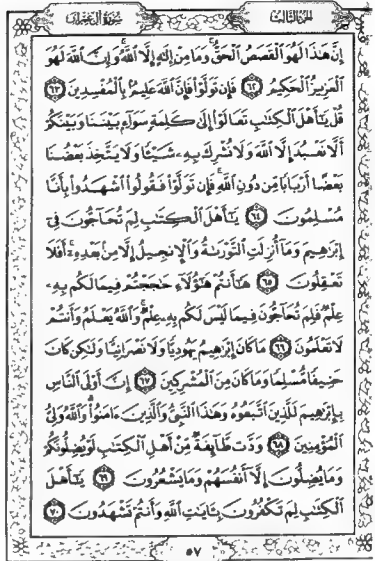 الجزء الثالث
سورة آل عمران
إِنَّ هَٰذَا لَهُوَ ٱلْقَصَصُ ٱلْحَقُّ ۚ وَمَا مِنْ إِلَٰهٍ إِلَّا ٱللَّهُ ۚ وَإِنَّ ٱللَّهَ لَهُوَ
ٱلْعَزِيزُ ٱلْحَكِيمُ ٦٢ فَإِن تَوَلَّوْا۟ فَإِنَّ ٱللَّهَ عَلِيمٌۢ بِٱلْمُفْسِدِينَ ٦٣
قُلْ يَٰٓأَهْلَ ٱلْكِتَٰبِ تَعَالَوْا۟ إِلَىٰ كَلِمَةٍ سَوَآءٍۭ بَيْنَنَا وَبَيْنَكُمْ
أَلَّا نَعْبُدَ إِلَّا ٱللَّهَ وَلَا نُشْرِكَ بِهِۦ شَيْـًٔا وَلَا يَتَّخِذَ بَعْضُنَا
بَعْضًا أَرْبَابًا مِّن دُونِ ٱللَّهِ ۚ فَإِن تَوَلَّوْا۟ فَقُولُوا۟ ٱشْهَدُوا۟ بِأَنَّا
مُسْلِمُونَ ٦٤ يَٰٓأَهْلَ ٱلْكِتَٰبِ لِمَ تُحَآجُّونَ فِىٓ
إِبْرَٰهِيمَ وَمَآ أُنزِلَتِ ٱلتَّوْرَىٰةُ وَٱلْإِنجِيلُ إِلَّا مِنۢ بَعْدِهِۦٓ ۚ أَفَلَا
تَعْقِلُونَ ٦٥ هَٰٓأَنتُمْ هَٰٓؤُلَآءِ حَٰجَجْتُمْ فِيمَا لَكُم بِهِۦ
عِلْمٌ فَلِمَ تُحَآجُّونَ فِيمَا لَيْسَ لَكُم بِهِۦ عِلْمٌ ۚ وَٱللَّهُ يَعْلَمُ وَأَنتُمْ
لَا تَعْلَمُونَ ٦٦ مَا كَانَ إِبْرَٰهِيمُ يَهُودِيًّا وَلَا نَصْرَانِيًّا وَلَٰكِن كَانَ
حَنِيفًا مُّسْلِمًا وَمَا كَانَ مِنَ ٱلْمُشْرِكِينَ ٦٧ إِنَّ أَوْلَى ٱلنَّاسِ
بِإِبْرَٰهِيمَ لَلَّذِينَ ٱتَّبَعُوهُ وَهَٰذَا ٱلنَّبِىُّ وَٱلَّذِينَ ءَامَنُوا۟ ۗ وَٱللَّهُ وَلِىُّ
ٱلْمُؤْمِنِينَ ٦٨ وَدَّت طَّآئِفَةٌ مِّنْ أَهْلِ ٱلْكِتَٰبِ لَوْ يُضِلُّونَكُمْ
وَمَا يُضِلُّونَ إِلَّآ أَنفُسَهُمْ وَمَا يَشْعُرُونَ ٦٩ يَٰٓأَهْلَ
ٱلْكِتَٰبِ لِمَ تَكْفُرُونَ بِـَٔايَٰتِ ٱللَّهِ وَأَنتُمْ تَشْهَدُونَ ٧٠
٥٧